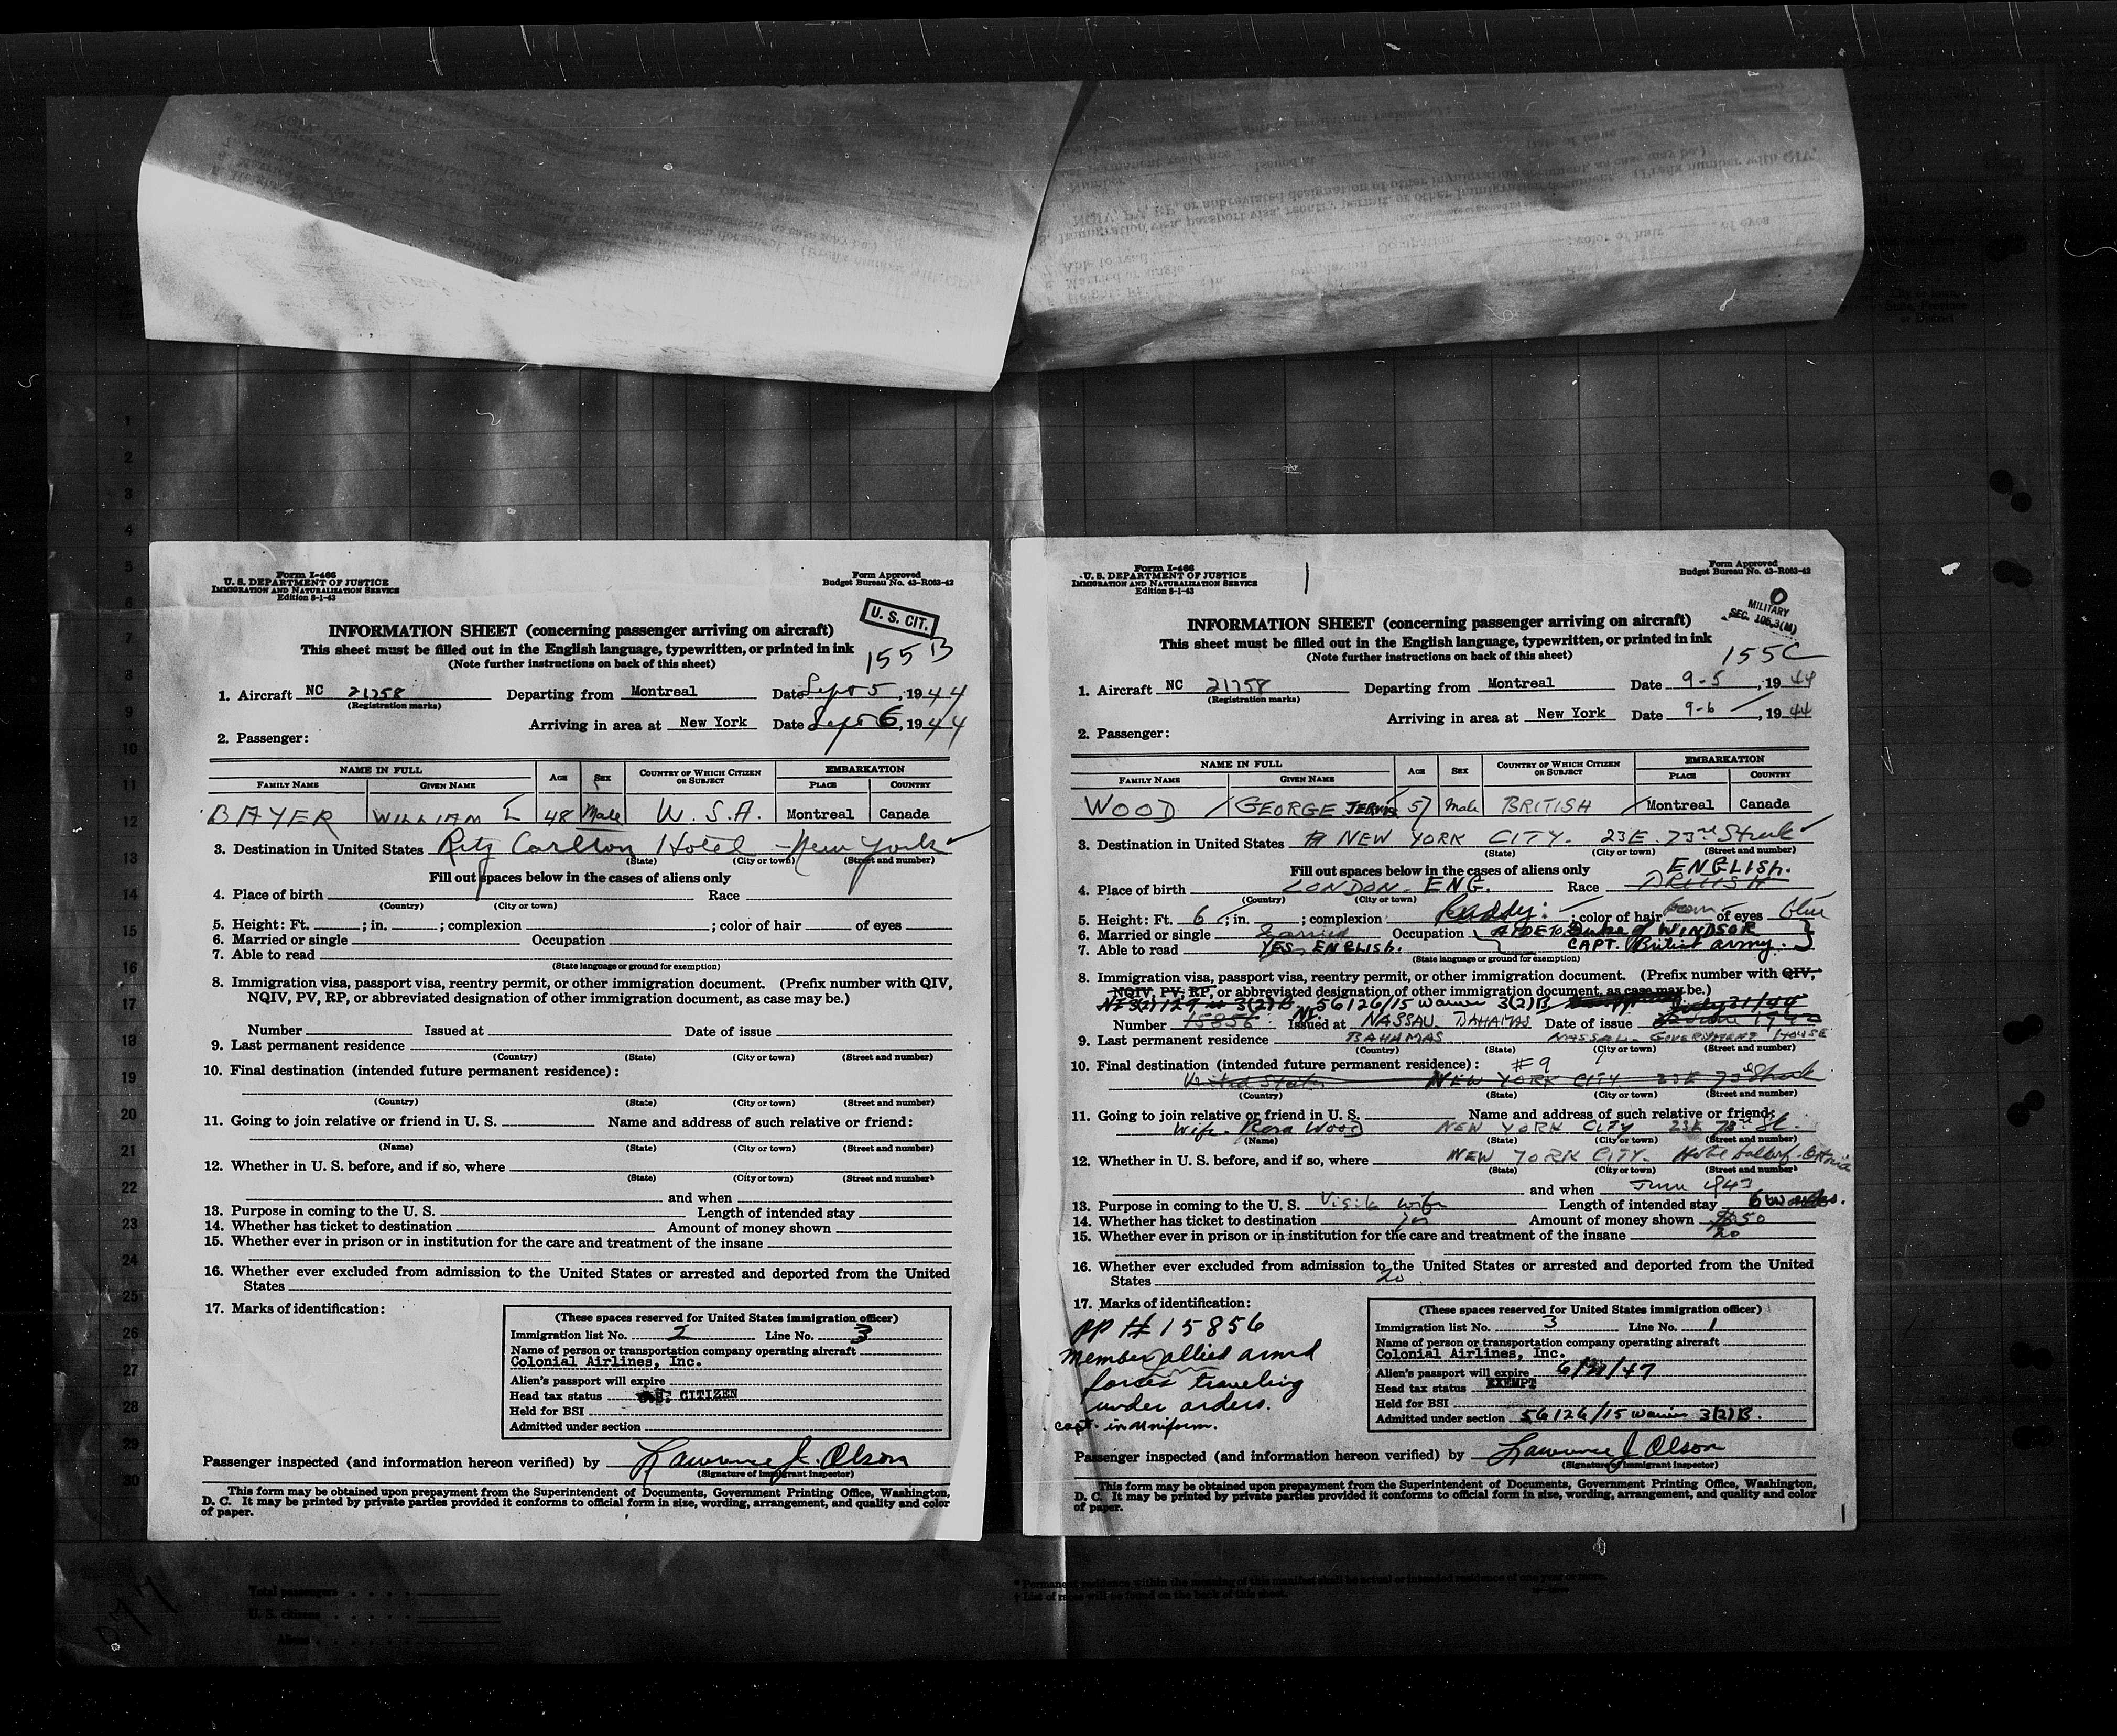 Form I-466
U. S. DEPARTMENT OF JUSTICE
IMMIGRATION AND NATURALIZATION SERVICE
Edition 8-1-43
Form Approved
Budget Bureau No. 43-R063-42
U. S. CIT.
INFORMATION SHEET (concerning passenger arriving on aircraft)
This sheet must be filled out in the English language, typewritten, or printed in ink
(Note further instructions on back of this sheet)
155 B
1. Aircraft NC 21758 Departing from Montreal Date Sept 5, 1944
(Registration marks)
Arriving in area at New York Date Sept 6, 1944
2. Passenger:
NAME IN FULL AGE SEX COUNTRY OF WHICH CITIZEN OR SUBJECT EMBARKATION
FAMILY NAME GIVEN NAME PLACE COUNTRY
BAYER WILLIAM L 48 Male U. S. A. Montreal Canada
3. Destination in United States Ritz Carlton Hotel - New York
(State) (City or town) (Street and number)
Fill out spaces below in the cases of aliens only
4. Place of birth Race
(Country) (City or town)
5. Height: Ft. ; in. ; complexion ; color of hair of eyes
6. Married or single Occupation
7. Able to read
(State language or ground for exemption)
8. Immigration visa, passport visa, reentry permit, or other immigration document. (Prefix number with QIV,
NQIV, PV, RP, or abbreviated designation of other immigration document, as case may be.)
Number Issued at Date of issue
9. Last permanent residence
(Country) (State) (City or town) (Street and number)
10. Final destination (intended future permanent residence):
(Country) (State) (City or town) (Street and number)
11. Going to join relative or friend in U. S. Name and address of such relative or friend:
(Name) (State) (City or town) (Street and number)
12. Whether in U. S. before, and if so, where
(State) (City or town) (Street and number)
and when
13. Purpose in coming to the U. S. Length of intended stay
14. Whether has ticket to destination Amount of money shown
15. Whether ever in prison or in institution for the care and treatment of the insane
16. Whether ever excluded from admission to the United States or arrested and deported from the United
States
17. Marks of identification:
(These spaces reserved for United States immigration officer)
Immigration list No. 2 Line No. 3
Name of person or transportation company operating aircraft
Colonial Airlines, Inc.
Alien's passport will expire
Head tax status U.S. CITIZEN
Held for BSI
Admitted under section
Passenger inspected (and information hereon verified) by Lawrence J. Olson
(Signature of immigrant inspector)
This form may be obtained upon prepayment from the Superintendent of Documents, Government Printing Office, Washington,
D. C. It may be printed by private parties provided it conforms to official form in size, wording, arrangement, and quality and color
of paper.
Form I-466
U. S. DEPARTMENT OF JUSTICE
IMMIGRATION AND NATURALIZATION SERVICE
Edition 8-1-43
Form Approved
Budget Bureau No. 43-R063-42
MILITARY
SEC. 106.3(M)
INFORMATION SHEET (concerning passenger arriving on aircraft)
This sheet must be filled out in the English language, typewritten, or printed in ink
(Note further instructions on back of this sheet)
155C
1. Aircraft NC 21758 Departing from Montreal Date 9-5, 1944
(Registration marks)
Arriving in area at New York Date 9-6, 1944
2. Passenger:
NAME IN FULL AGE SEX COUNTRY OF WHICH CITIZEN OR SUBJECT EMBARKATION
FAMILY NAME GIVEN NAME PLACE COUNTRY
WOOD GEORGE JERVIS 57 Male BRITISH Montreal Canada
3. Destination in United States NEW YORK CITY. 23 E. 73rd Street
(State) (City or town) (Street and number)
Fill out spaces below in the cases of aliens only
ENGLISH.
4. Place of birth LONDON. ENG. Race BRITISH
(Country) (City or town)
5. Height: Ft. 6; in. ; complexion Ruddy: ; color of hair of eyes blue
6. Married or single Married Occupation AYDE TO Duke of WINDSOR
7. Able to read YES. ENGLISH. CAPT. British army.
(State language or ground for exemption)
8. Immigration visa, passport visa, reentry permit, or other immigration document. (Prefix number with QIV,
NQIV, PV, RP, or abbreviated designation of other immigration document, as case may be.)
56126/15 Waiver 3(2)B July 31/44
Number 15856 Issued at NASSAU BAHAMAS Date of issue
9. Last permanent residence BAHAMAS NASSAU. GOVERNMENT HOUSE
(Country) (State) (City or town) (Street and number)
10. Final destination (intended future permanent residence): #9
United States NEW YORK CITY 23 E 73rd Street
(Country) (State) (City or town) (Street and number)
11. Going to join relative or friend in U. S. Name and address of such relative or friend:
Wife. Rosa Wood NEW YORK CITY 23 E 73rd St.
(Name) (State) (City or town) (Street and number)
12. Whether in U. S. before, and if so, where NEW YORK CITY. Hotel
(State) (City or town) (Street and number)
and when June 1943
13. Purpose in coming to the U. S. Visit wife Length of intended stay 6 weeks.
14. Whether has ticket to destination yes Amount of money shown $50
15. Whether ever in prison or in institution for the care and treatment of the insane no
16. Whether ever excluded from admission to the United States or arrested and deported from the United
States no
17. Marks of identification:
PP # 15856
Member allied armed
forces traveling
under orders.
capt. in uniform.
(These spaces reserved for United States immigration officer)
Immigration list No. 3 Line No. 1
Name of person or transportation company operating aircraft
Colonial Airlines, Inc.
Alien's passport will expire
Head tax status EXEMPT
Held for BSI
Admitted under section 56126/15 Waiver 3(2)B.
Passenger inspected (and information hereon verified) by Lawrence J Olson
(Signature of immigrant inspector)
This form may be obtained upon prepayment from the Superintendent of Documents, Government Printing Office, Washington,
D. C. It may be printed by private parties provided it conforms to official form in size, wording, arrangement, and quality and color
of paper.
Total passengers
U. S. citizens
Aliens
* Permanent residence within the meaning of this manifest shall be actual or intended residence of one year or more.
† List of races will be found on the back of this sheet.